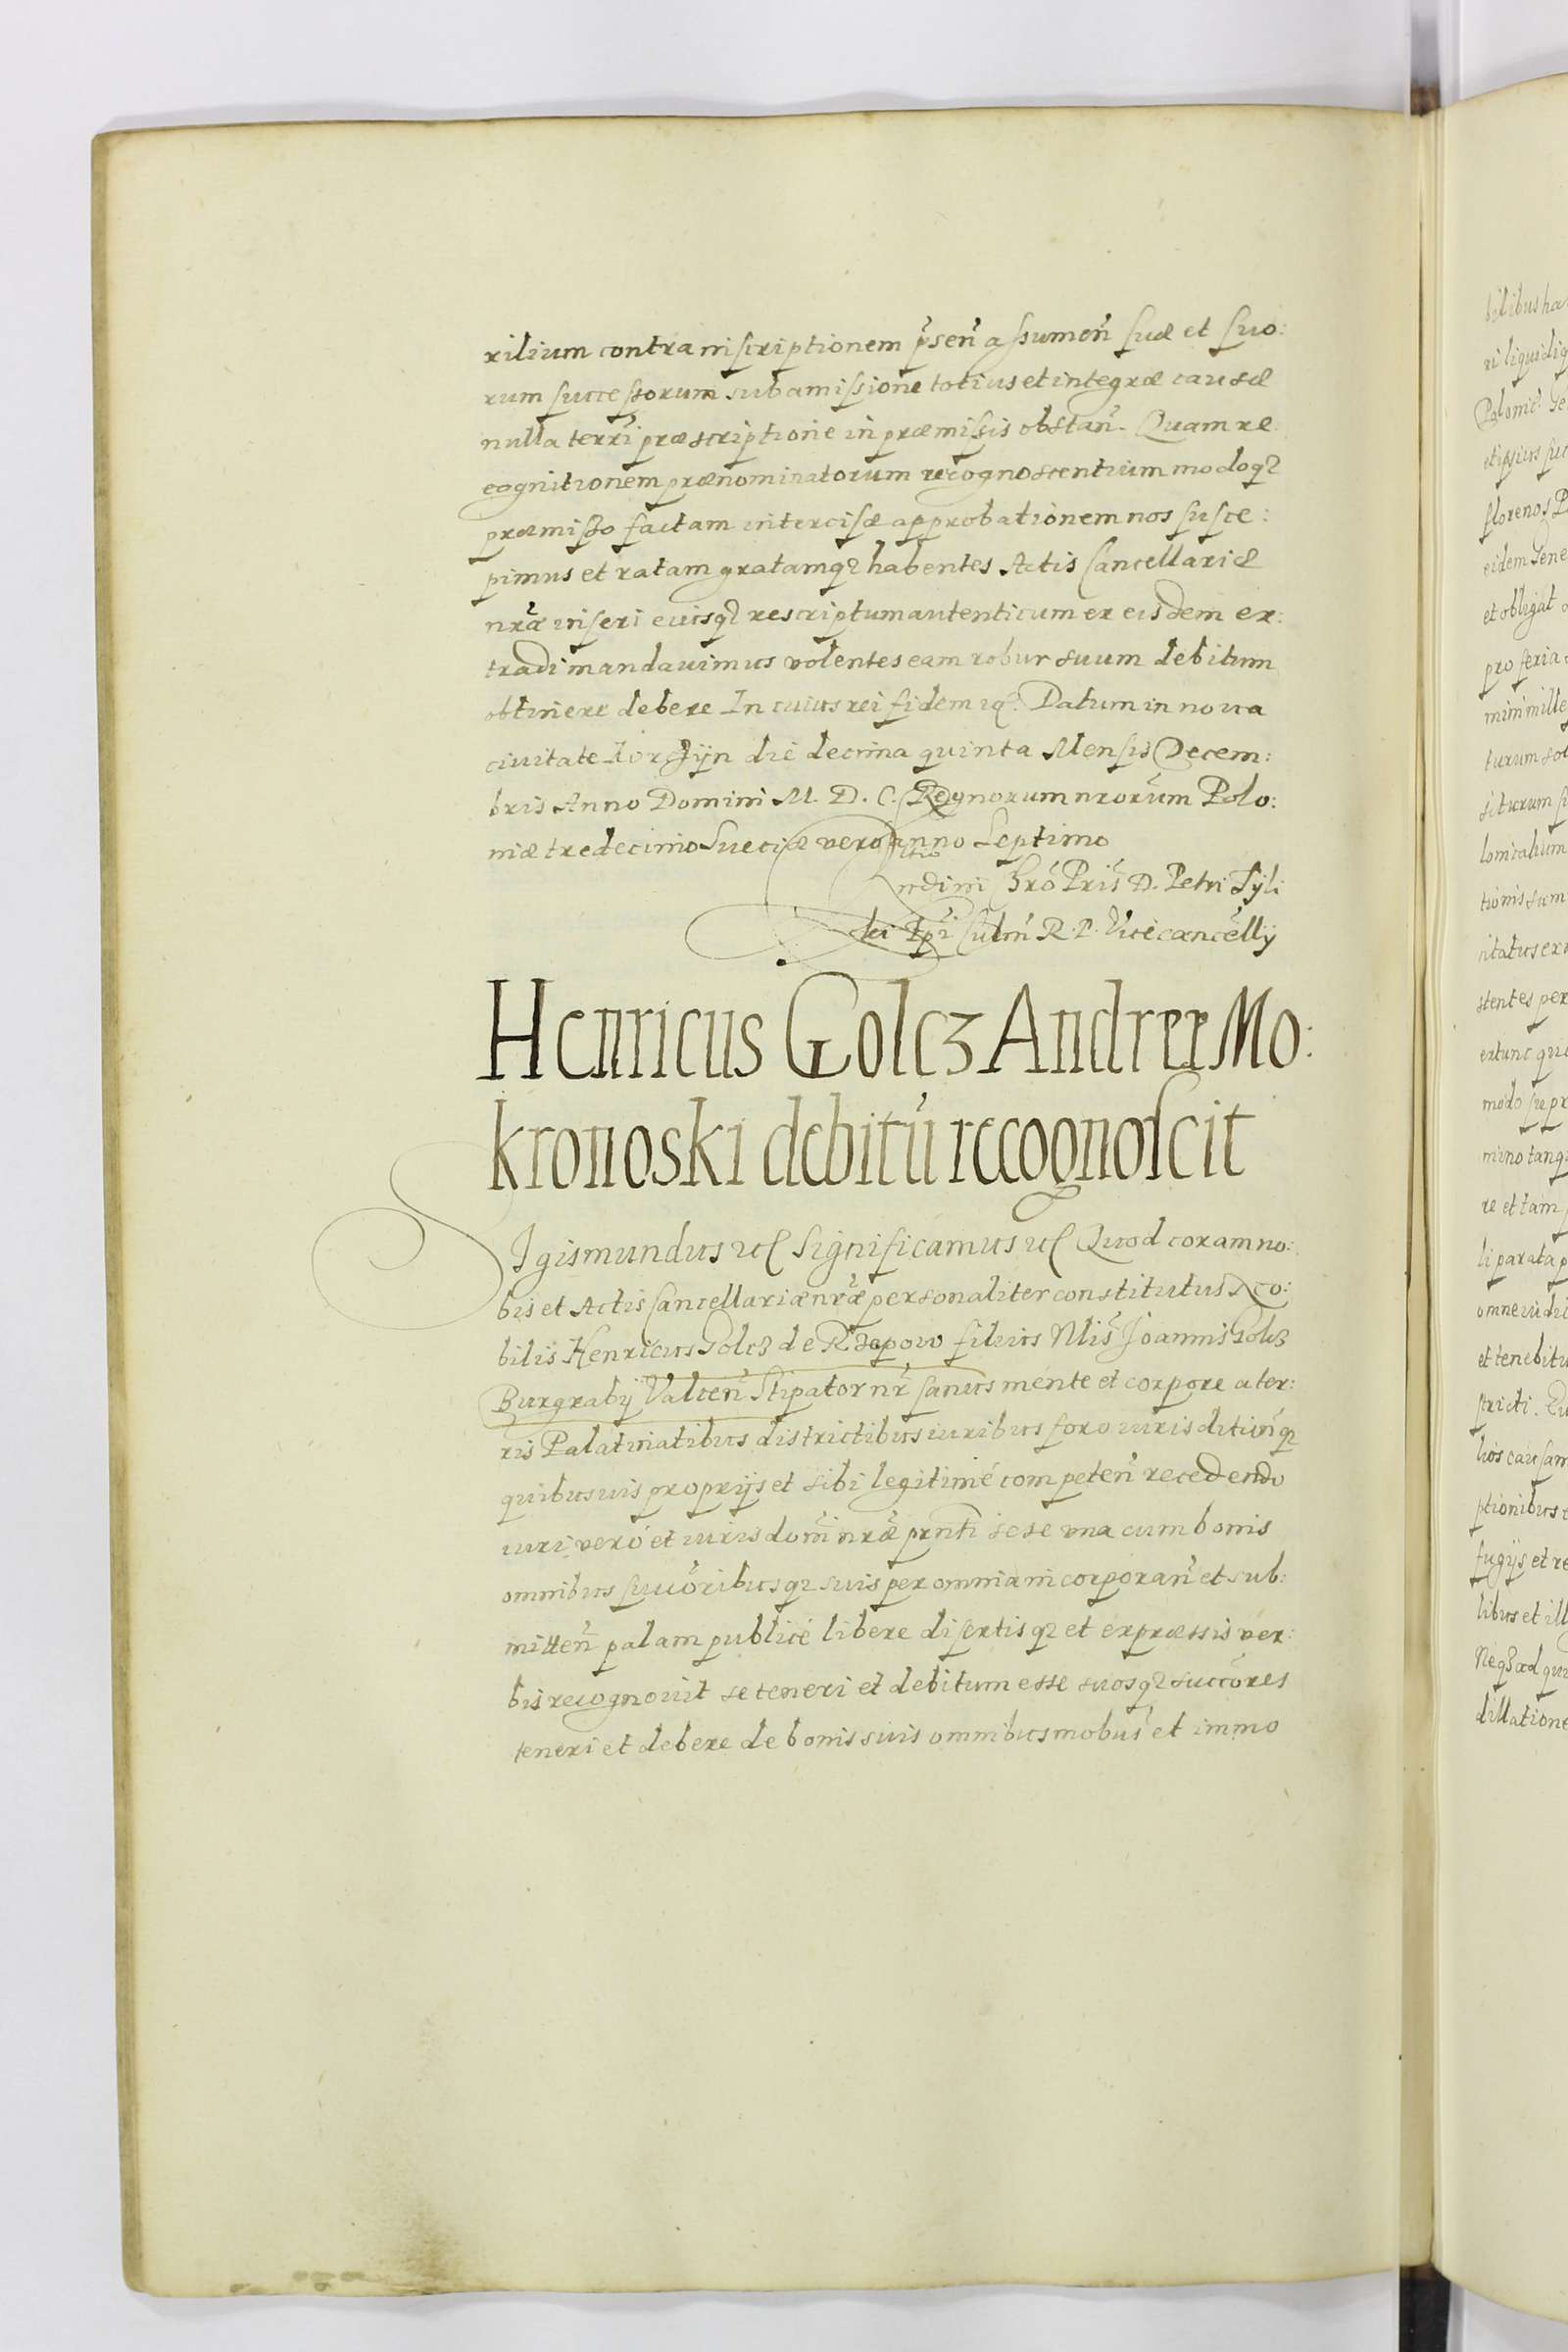 xilium contra inscriptionem pñsen̄ assumen̄ suæ et suo:
rum successorum sub amissione totius et integræ causæ
nulla terrī præscriptione in præmissis obstan̄. Quam re
cognitionem prænominatorum recognoscentium modoq₃
præmisso factam intercisæ approbationem nos susce:
pimus et ratam gratamq₃ habentes Actis Cancellariæ
nr̄æ inseri eiusq₃ rescriptum autenticum ex eisdem ex:
tradi mandauimus volentes eam robur suum debitum
obtinere debere In cuius rei fidem etc. Datum in noua
ciuitate Korczÿn die decima quinta Mensis Decem:
bris Anno Domini M. D. C. Regnorum nrorum̄ Polo:
niæ tredecimo Sueciæ vero anno Septimo
Petri Tÿli
cki Ep̄i Culm̄ R. P. Vicecancell̄ÿ
Henricus Golcz Andreæ Mo:
kronoski debitū recognoscit
Sigismundus etc Significamus etc Quod coram no:
bis et Actis Cancellariæ nr̄æ personaliter constitutus No:
bilis Henricus Golcz de Rzepow filius Nlis̄ Joannis Golcz
Burgrabÿ Valcen̄ Stipator nr̄ sanus mente et corpore a ter:
ris Palatinatibus districtibus iuribus foro iurisditiōnq₃
quibusuis proprÿs et sibi legitimé competen̄ recedendo
iuri veró et iurisdom̄ nr̄æ prnti sese vna cum bonis
omnibus succōribusq₃ suis per omnia incorporan̄ et sub:
mitten̄ palam publicé libere disertisq₃ et expræssis ver:
bis recognouit se teneri et debitum esse suosq₃ succōres
teneri et debere de bonis suis omnibus mobus̄ et immo